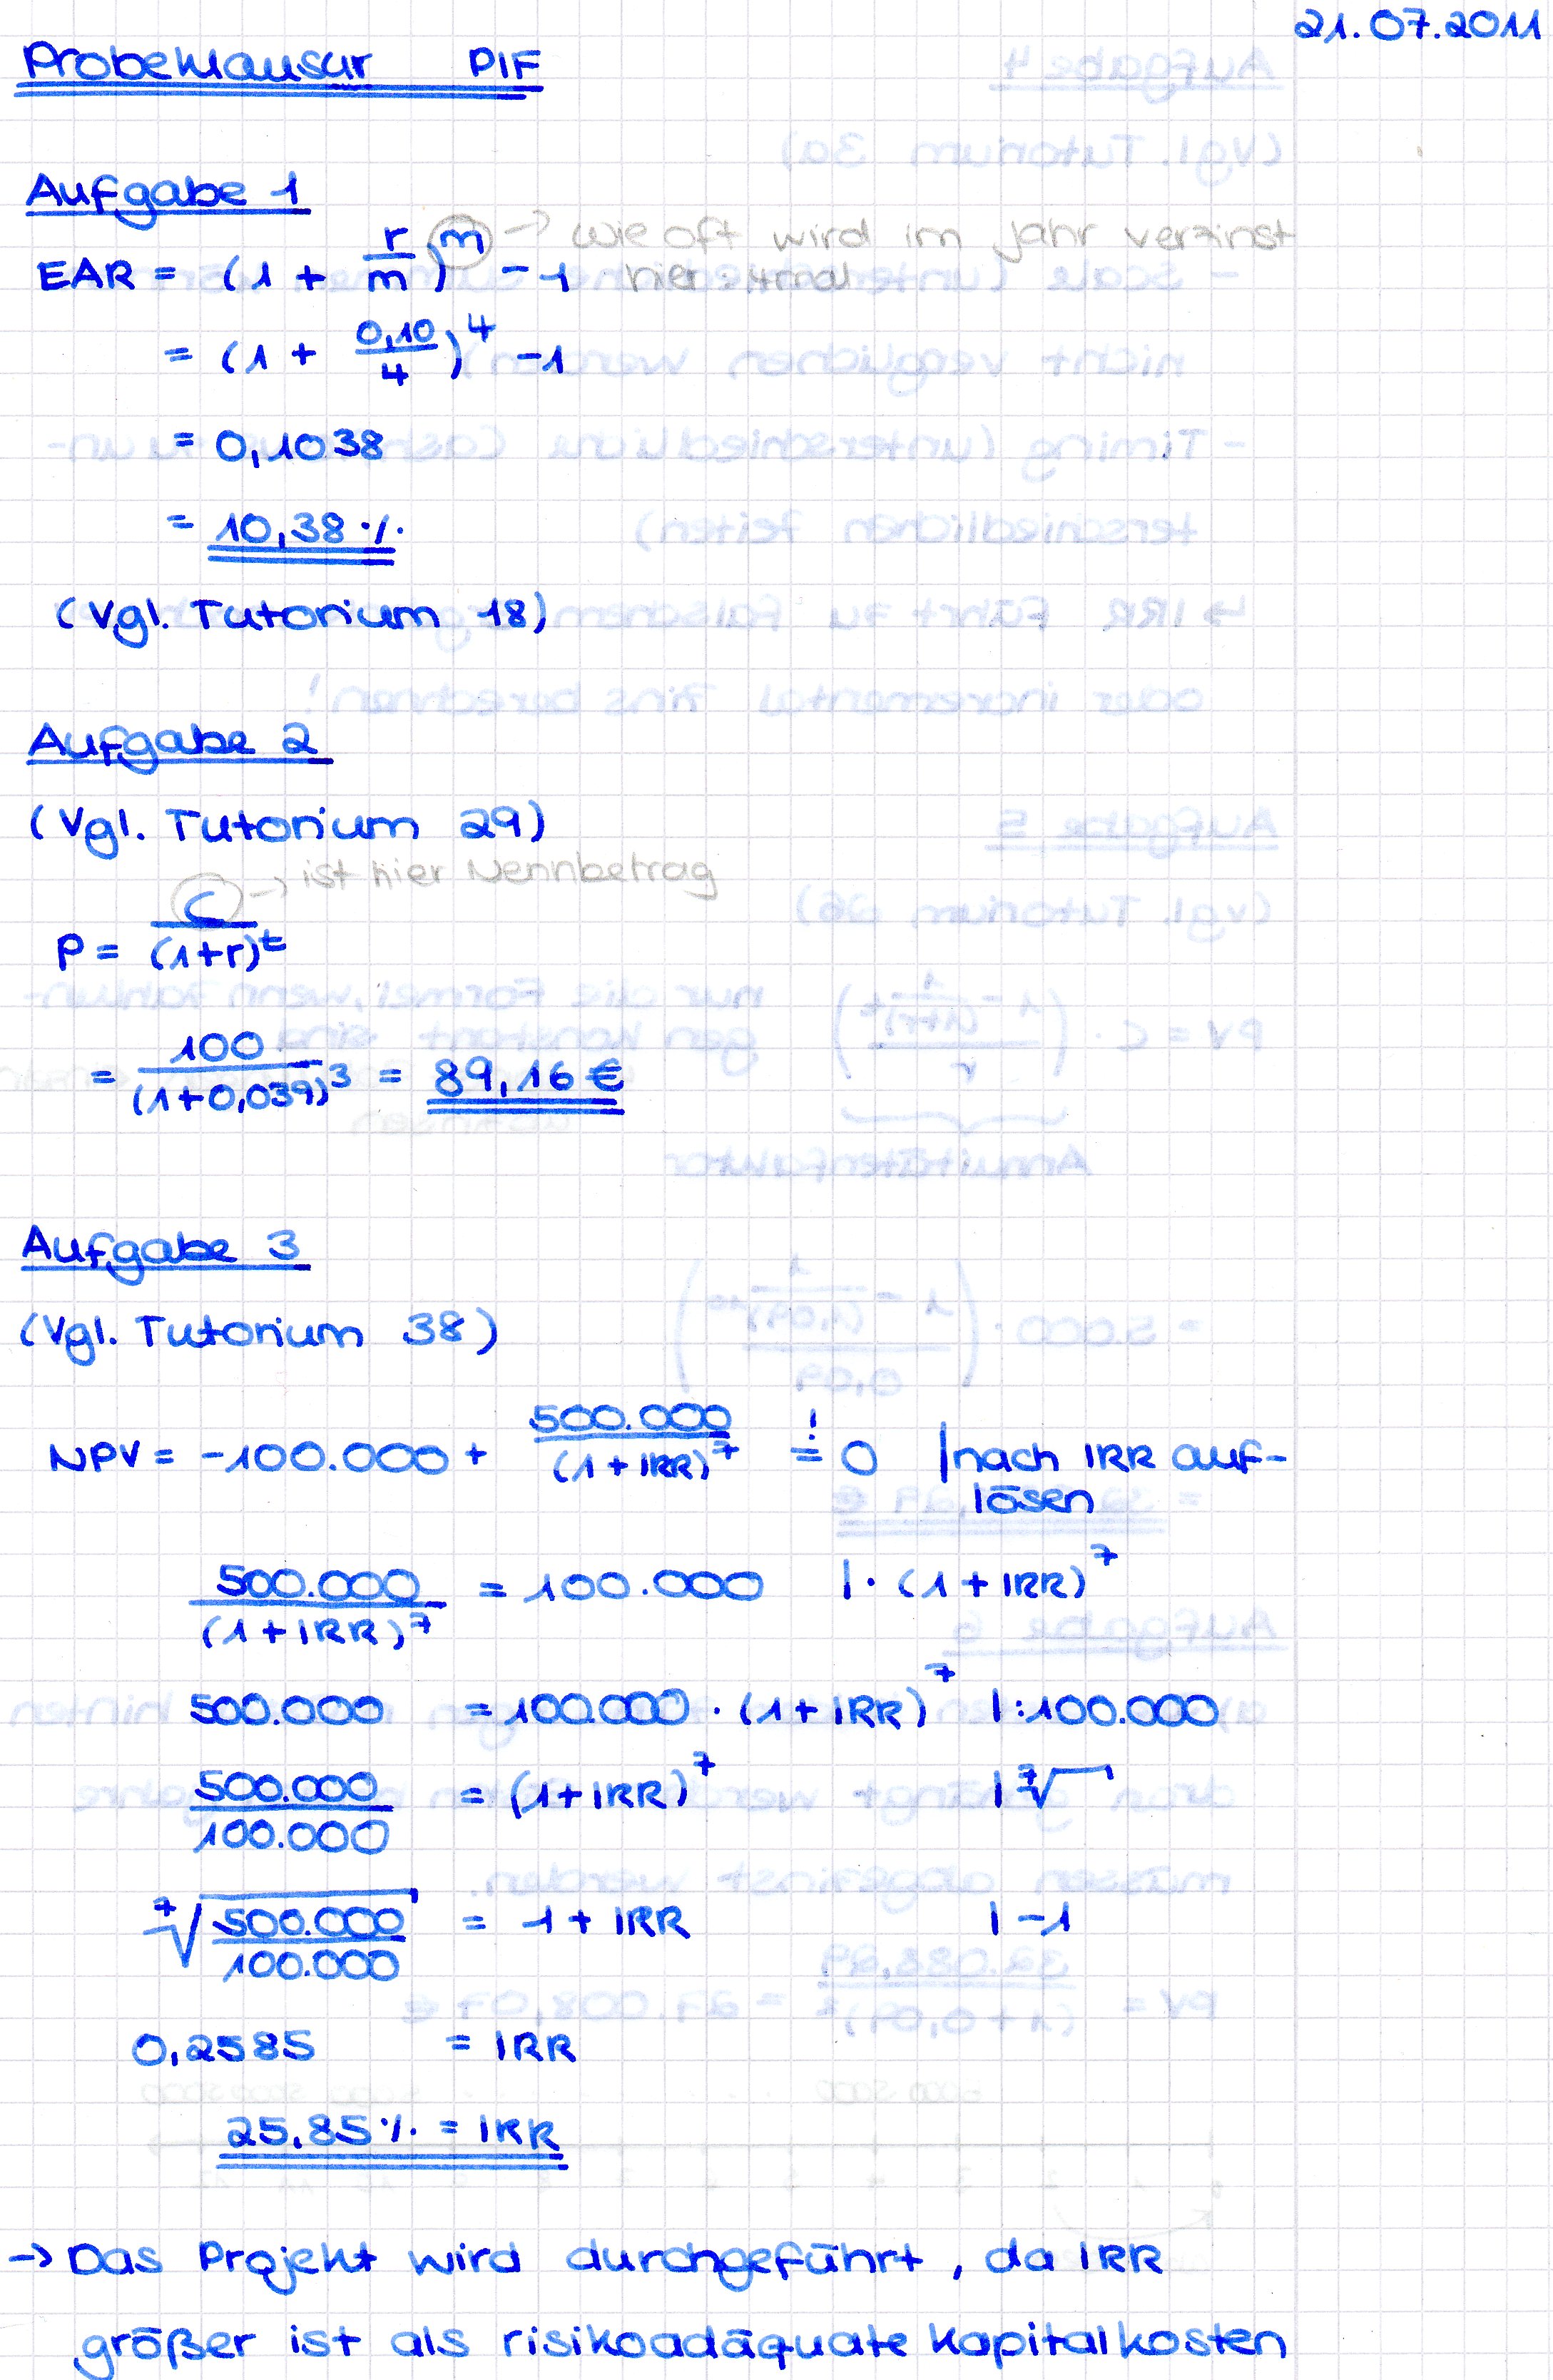 21.07.2011
Probeklausur PIF
Aufgabe 1
EAR = (1 + r/m)^m - 1 → wie oft wird im Jahr verzinst
hier: 4mal
= (1 + 0,10/4)^4 - 1
= 0,1038
= 10,38 %
(Vgl. Tutorium 18)
Aufgabe 2
(Vgl. Tutorium 29)
P = C/(1+r)^t → ist hier Nennbetrag
= 100/(1+0,039)^3 = 89,16 €
Aufgabe 3
(Vgl. Tutorium 38)
NPV = -100.000 + 500.000/(1+IRR)^7 =! 0 | nach IRR auf-
lösen
500.000/(1+IRR)^7 = 100.000 | · (1+IRR)^7
500.000 = 100.000 · (1+IRR)^7 | :100.000
500.000/100.000 = (1+IRR)^7 | 7√
7√(500.000/100.000) = 1 + IRR | -1
0,2585 = IRR
25,85 % = IRR
→ Das Projekt wird durchgeführt, da IRR
größer ist als risikoadäquate Kapitalkosten